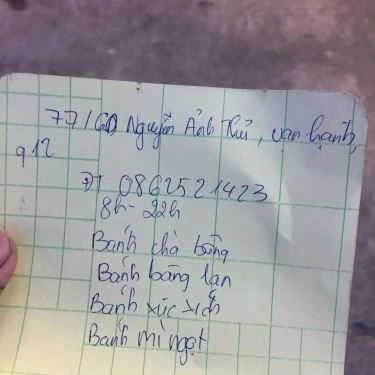 77/6D Nguyễn Ảnh Thủ, vạn hạnh,
q 12
ĐT 0862521423
8h - 22h
Bánh chà bông
Bánh bông lan
Bánh xúc xích
Bánh mì ngọt